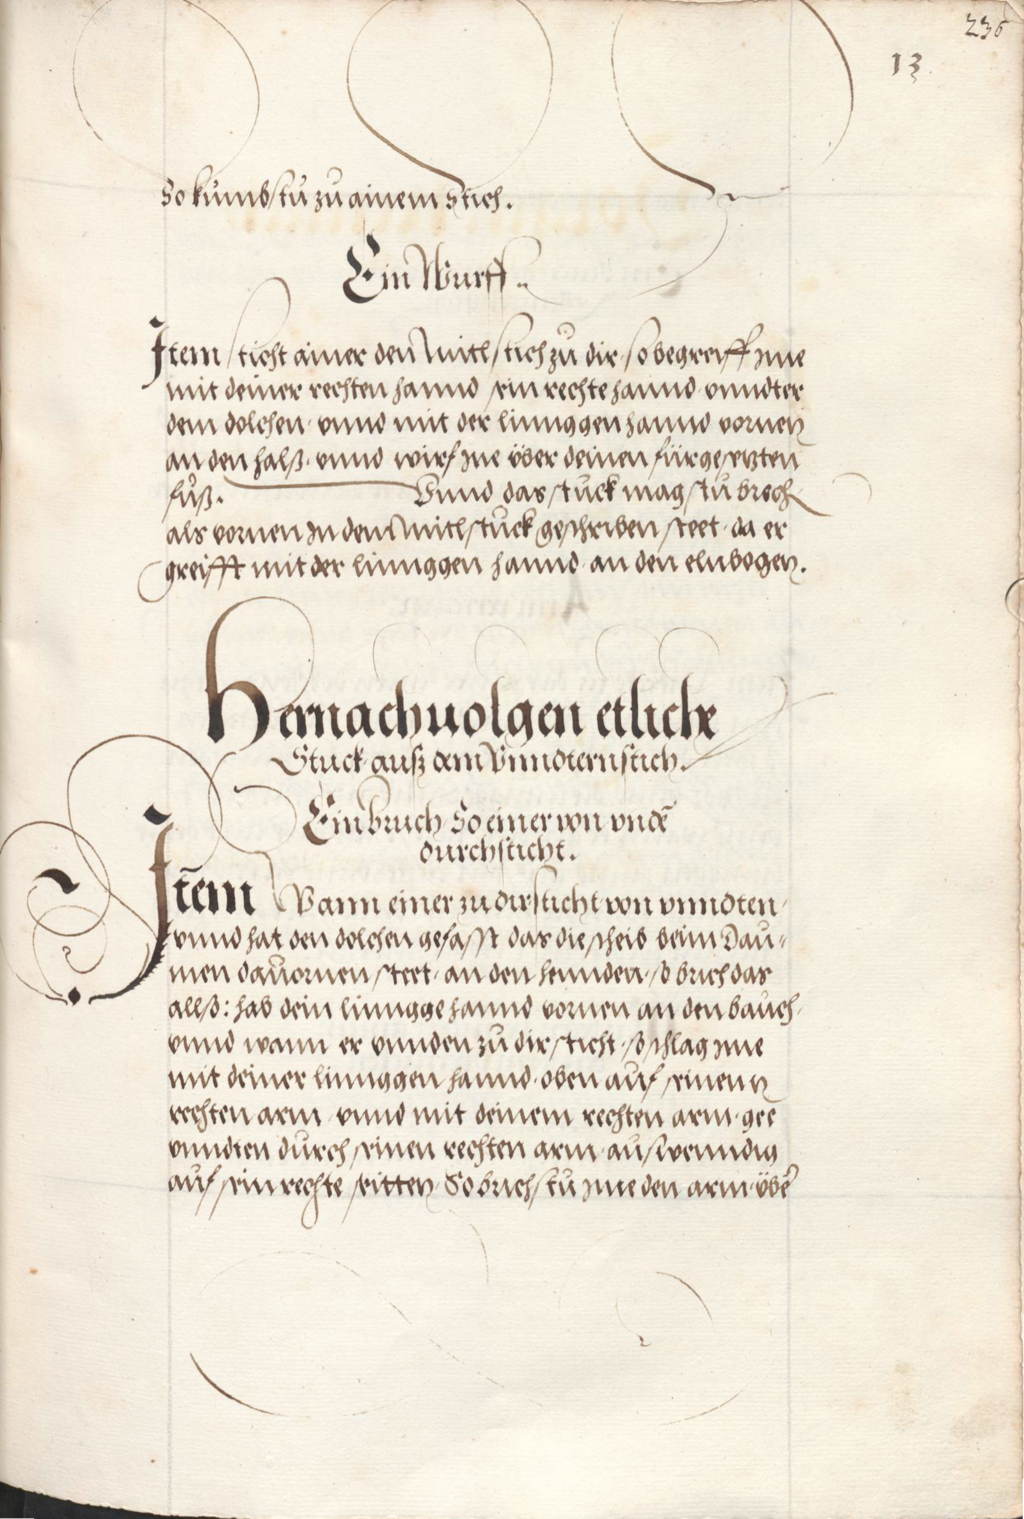 236
13
So kumbstu zu ainem Stich.
Ein Wurff.
Item sticht ainer den Mitlstich zu dir, so begreiff Ime
mit deiner rechten hannd sein rechte hannd vnndter
dem dolchen, vnnd mit der linnggen hannd vornen
an den halß, vnnd wirf Ine über deinen fürgesetzten
fuß. Vnnd das stuck magstu brech
als vornen in dem Mitlstuck geschriben steet, da er
greifft mit der linnggen hannd, an den elnbogen.
Hernachuolgen etliche
Stuck auß dem Vnndternstich.
Ein bruch So einer von vndē
durchsticht.
Item Wann einer zu dir sticht von vnndten
vnnd hat den dolchen gefasst das die scheib beim Dau=
men dauornen steet, an den hennden, so brich das
allß: hab dein linngge hannd vornen an den bauch,
vnnd wann er vnnden zu dir sticht, so schlag Ime
mit deiner linnggen hannd, oben auf seinen
rechten arm, vnnd mit deinem rechten arm, gee
vnndten durch seinen rechten arm, auswenndig
auf sein rechte seitten, So brichstu Ime den arm, übē